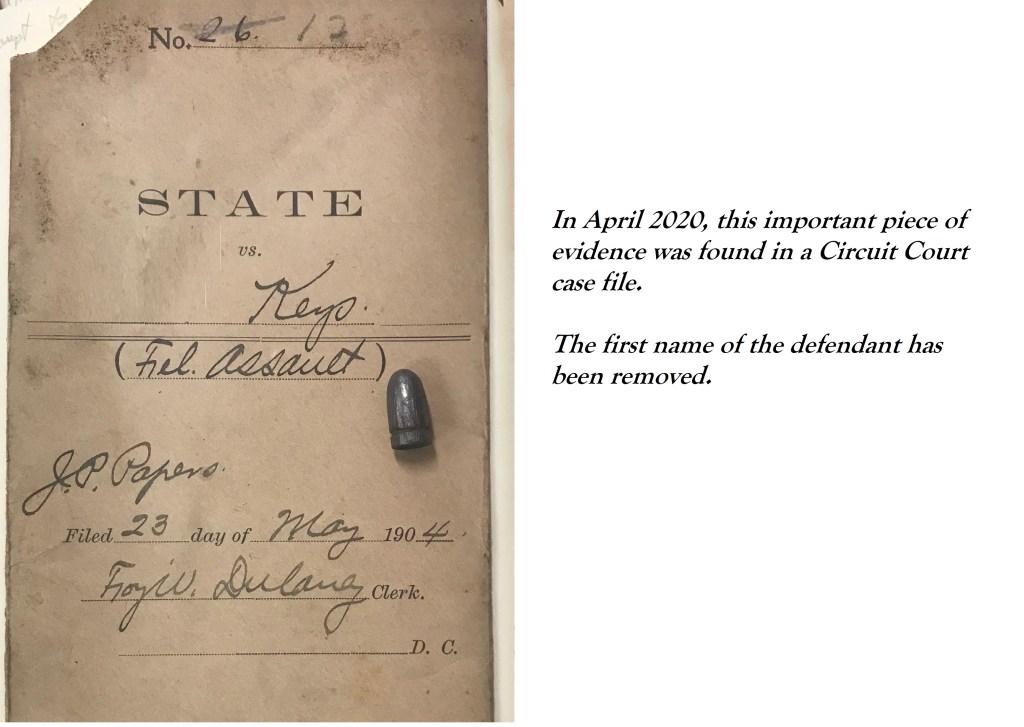 No. 26. 12
STATE
vs.
Keys.
(Fel. Assault)
J.P. Papers.
Filed 23 day of May 1904
Troy W. Dulaney Clerk.
D. C.
In April 2020, this important piece of
evidence was found in a Circuit Court
case file.
The first name of the defendant has
been removed.